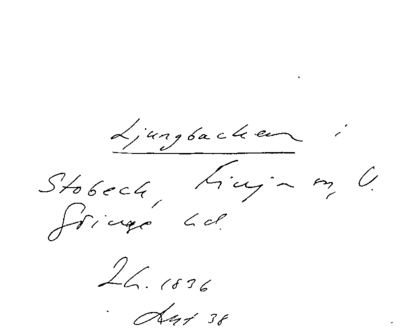 Ljungbacken i
Stobeck, Linja m, V.
Göinge hd.
Lh. 1836
Akt 38